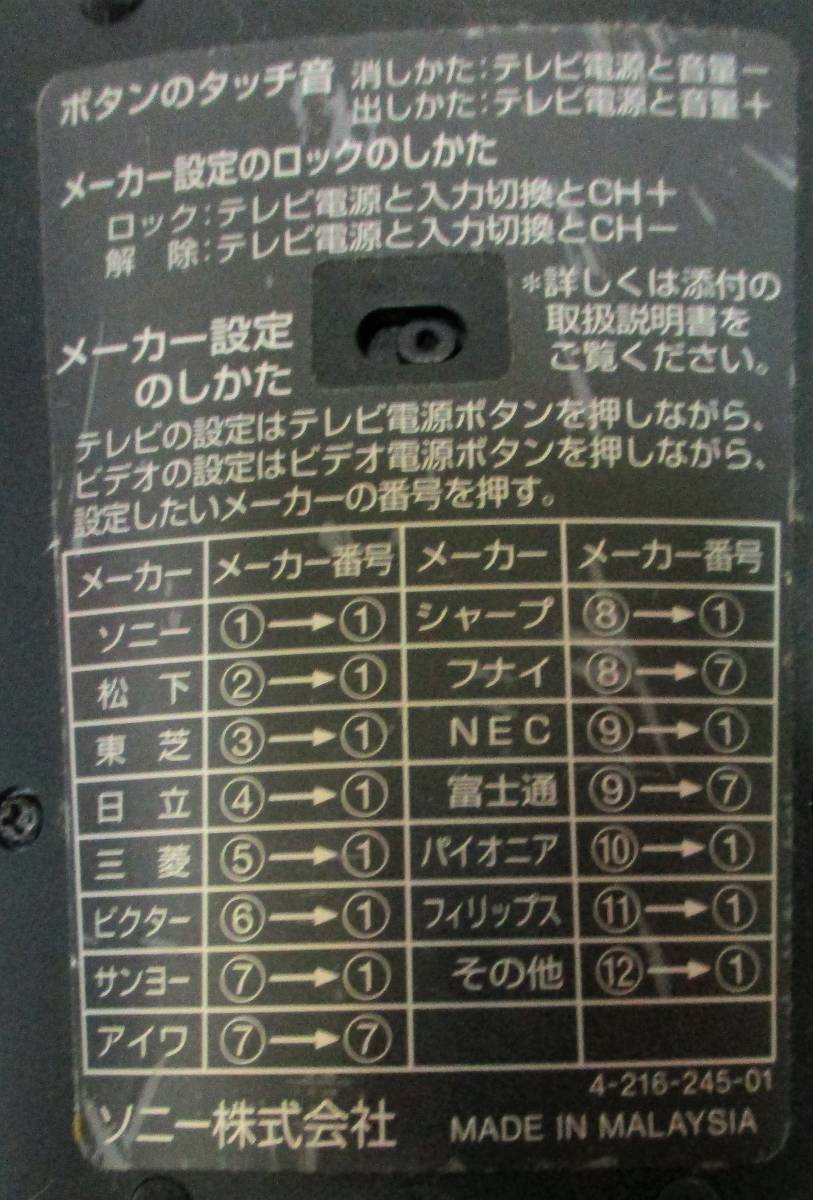 ボタンのタッチ音 消しかた:テレビ電源と音量－
出しかた:テレビ電源と音量＋
メーカー設定のロックのしかた
ロック:テレビ電源と入力切換とCH＋
解 除:テレビ電源と入力切換とCH－
メーカー設定
のしかた
*詳しくは添付の
取扱説明書を
ご覧ください。
テレビの設定はテレビ電源ボタンを押しながら、
ビデオの設定はビデオ電源ボタンを押しながら、
設定したいメーカーの番号を押す。
メーカー メーカー番号 メーカー メーカー番号
ソニー ①→① シャープ ⑧→①
松 下 ②→① フナイ ⑧→⑦
東 芝 ③→① NEC ⑨→①
日 立 ④→① 富士通 ⑨→⑦
三 菱 ⑤→① パイオニア ⑩→①
ビクター ⑥→① フィリップス ⑪→①
サンヨー ⑦→① その他 ⑫→①
アイワ ⑦→⑦
4-216-245-01
ソニー株式会社 MADE IN MALAYSIA